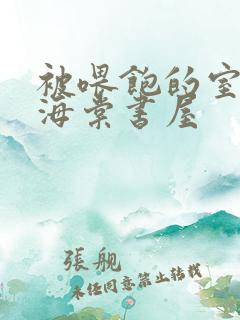 被喂饱的室
海棠书屋
張舰
未经同意禁止转载